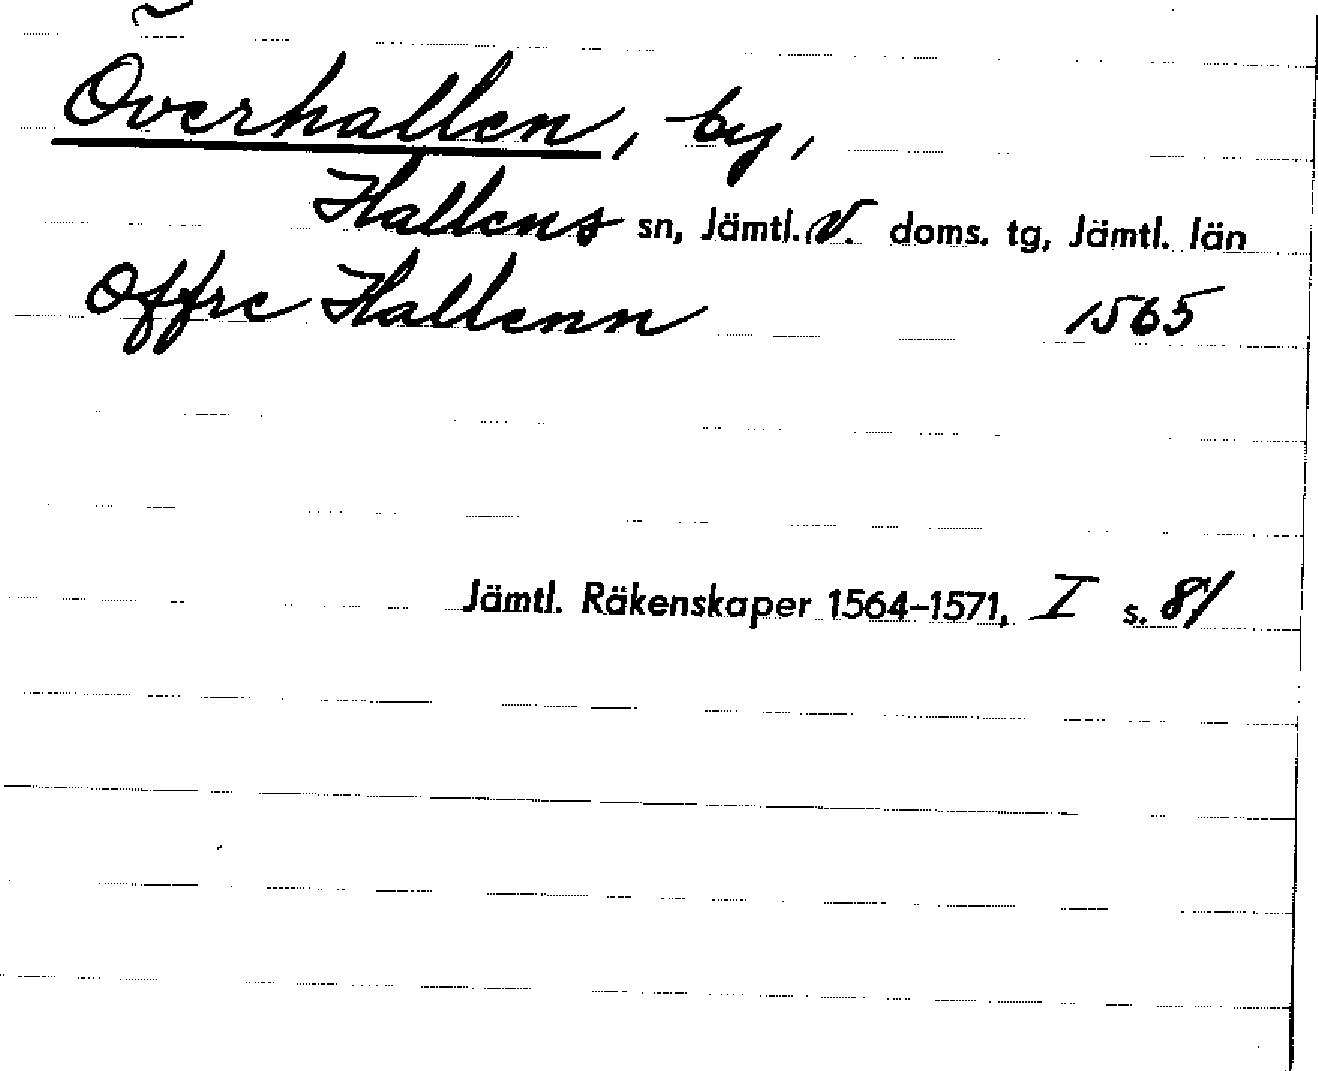 Överhallen, by,
Hallens sn, Jämtl. V. doms. tg, Jämtl. län
Offre Hallenn 1565
Jämtl. Räkenskaper 1564-1571, I s. 81